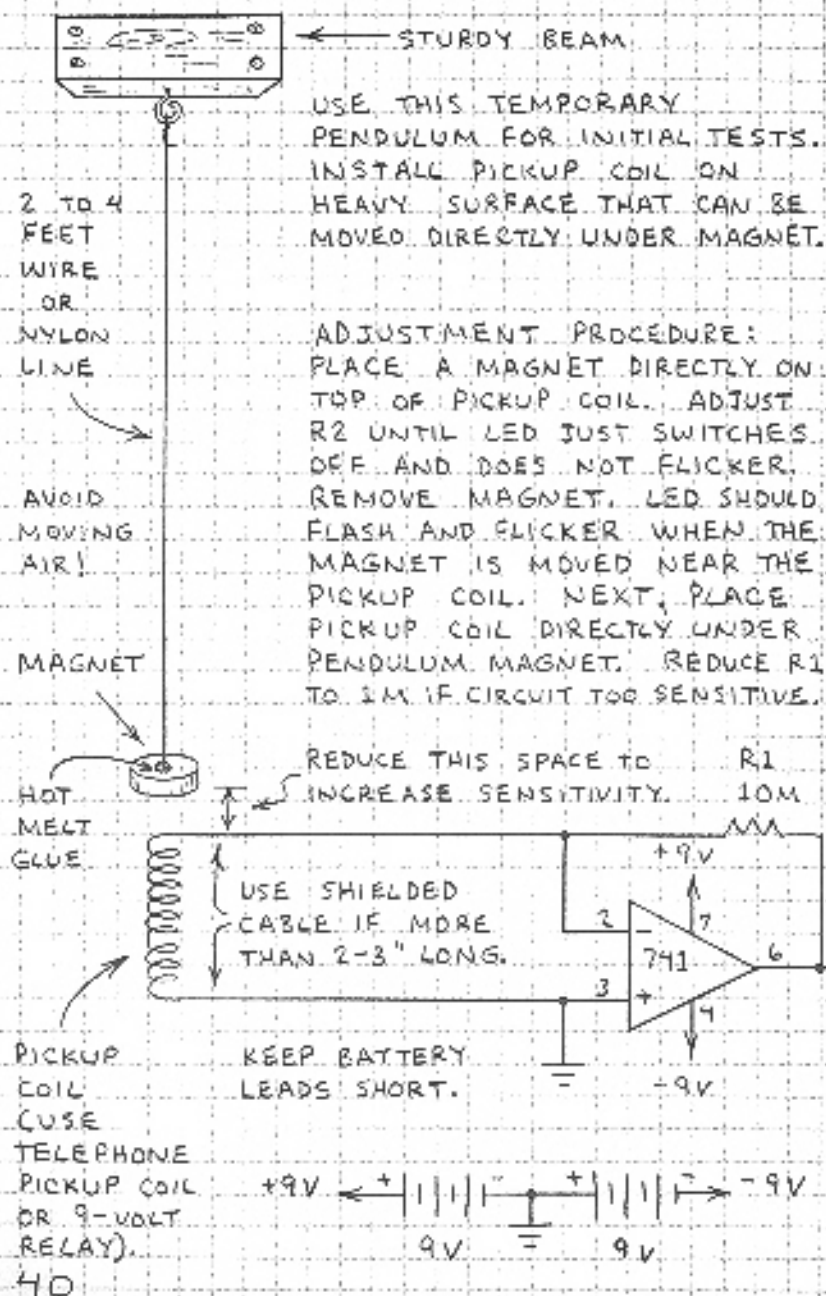 STURDY BEAM
USE THIS TEMPORARY
PENDULUM FOR INITIAL TESTS.
INSTALL PICKUP COIL ON
HEAVY SURFACE THAT CAN BE
MOVED DIRECTLY UNDER MAGNET.
2 TO 4
FEET
WIRE
OR
NYLON
LINE
ADJUSTMENT PROCEDURE:
PLACE A MAGNET DIRECTLY ON
TOP OF PICKUP COIL. ADJUST
R2 UNTIL LED JUST SWITCHES
OFF AND DOES NOT FLICKER.
REMOVE MAGNET. LED SHOULD
FLASH AND FLICKER WHEN THE
MAGNET IS MOVED NEAR THE
PICKUP COIL. NEXT, PLACE
PICKUP COIL DIRECTLY UNDER
PENDULUM MAGNET. REDUCE R1
TO 1M IF CIRCUIT TOO SENSITIVE.
AVOID
MOVING
AIR!
MAGNET
HOT
MELT
GLUE
REDUCE THIS SPACE TO
INCREASE SENSITIVITY.
R1
10M
USE SHIELDED
CABLE IF MORE
THAN 2-3" LONG.
+9V
7
2
-
741
6
3
+
4
-9V
PICKUP
COIL
(USE
TELEPHONE
PICKUP COIL
OR 9-VOLT
RELAY).
KEEP BATTERY
LEADS SHORT.
+9V + - + - -9V
9V 9V
40